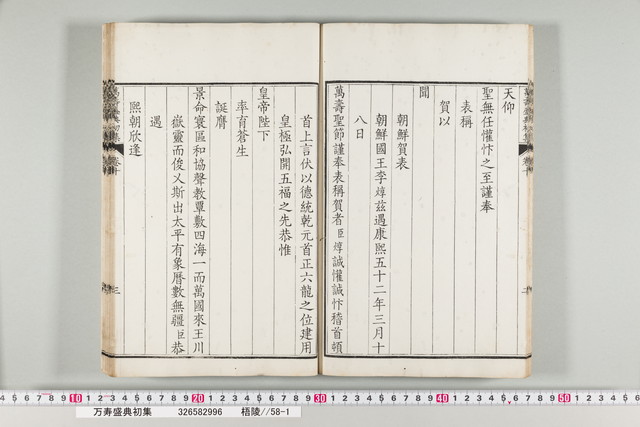 天仰
聖無任懽忭之至謹奉
表稱
賀以
聞
朝鮮賀表
朝鮮國王李焞茲遇康熙五十二年三月十
八日
萬壽聖節謹奉表稱賀者臣焞誠懽誠忭稽首頓
首上言伏以德統乾元首正六龍之位建用
皇極弘開五福之先恭惟
皇帝陛下
率育蒼生
誕膺
景命寰區和協聲教覃敷四海一而萬國來王川
嶽靈而俊乂斯出太平有象曆數無疆臣恭
遇
熙朝欣逢
万寿盛典初集 326582996 梧陵//58-1